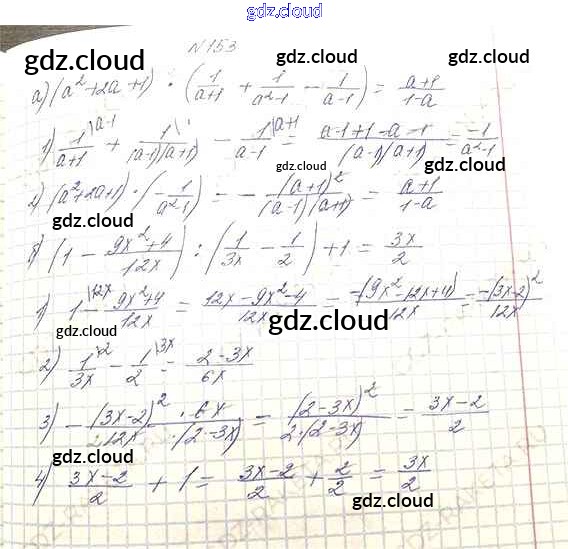 gdz.cloud
N 153
gdz.cloud gdz.cloud gdz.cloud
а) (a²+2a+1) · (1/(a+1) + 1/(a²-1) - 1/(a-1)) = (a+1)/(1-a)
1) 1/(a+1) |a-1 + 1/((a-1)(a+1)) |1 - 1/(a-1) |a+1 = (a-1+1-a-1)/((a-1)(a+1)) = -1/(a²-1)
gdz.cloud gdz.cloud
2) (a²+2a+1) · (-1/(a²-1)) = - (a+1)²/((a-1)(a+1)) = (a+1)/(1-a)
gdz.cloud gdz.cloud gdz.cloud
б) (1 - (9x²+4)/12x) : (1/3x - 1/2) + 1 = 3x/2
1) 1 |12x - (9x²+4)/12x = (12x-9x²-4)/12x = -(9x²-12x+4)/12x = -(3x-2)²/12x
gdz.cloud gdz.cloud
gdz.cloud
2) 1/3x |2 - 1/2 |3x = (2-3x)/6x
gdz.cloud
3) - (3x-2)² · 6x/(2 12x · (2-3x)) = (2-3x)²/(2·(2-3x)) = (3x-2)/2
gdz.cloud gdz.cloud
4) (3x-2)/2 + 1 = (3x-2)/2 + 2/2 = 3x/2
gdz.cloud
gdz.cloud